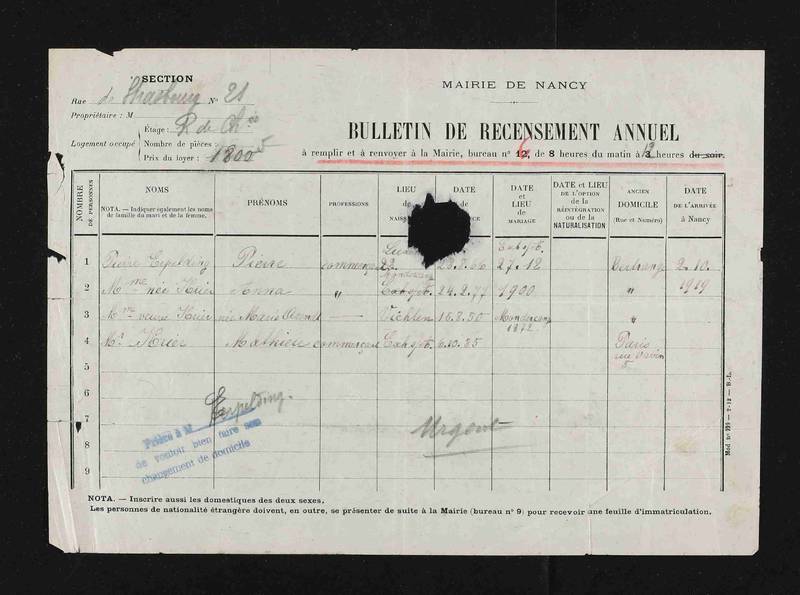 SECTION
Rue de Strasbourg N° 21
Propriétaire : M
Étage : R. de Ch.ée
Logement occupé
Nombre de pièces : 5
Prix du loyer : 1800
MAIRIE DE NANCY
BULLETIN DE RECENSEMENT ANNUEL
à remplir et à renvoyer à la Mairie, bureau n° 12, 6 de 8 heures du matin à 3 12 heures du soir.
NOMBRE DE PERSONNES
NOMS
NOTA. — Indiquer également les noms de famille du mari et de la femme.
PRÉNOMS
PROFESSIONS
LIEU de
DATE
DATE et LIEU de MARIAGE
DATE et LIEU DE L'OPTION de la RÉINTÉGRATION ou de la NATURALISATION
ANCIEN DOMICILE (Rue et Numéro)
DATE DE L'ARRIVÉE à Nancy
1 Pierre Espelding Pierre commerçant 23.8.66 Esch s/t. 27.12 Bertrange 2.10.
2 Mme née Krier Anna " Esch s/t. 24.2.77 1900 " 1919
3 Mme veuve Krier née Marie — Vichten 16.8.50 Mondercange 1872 "
4 Mr Krier Mathieu commerçant Esch s/t. 6.10.85 Paris
5
6
7
8
9
Espelding.
Prière à M
de vouloir bien faire son
changement de domicile
Urgent
Mod. n° 199 — 2-12 — B.-L.
NOTA. — Inscrire aussi les domestiques des deux sexes.
Les personnes de nationalité étrangère doivent, en outre, se présenter de suite à la Mairie (bureau n° 9) pour recevoir une feuille d'immatriculation.